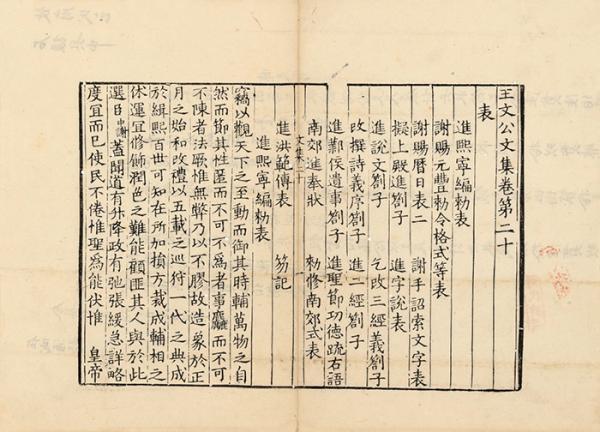 王文公文集卷第二十
表
進熙寧編勑表
謝賜元豐勑令格式等表
謝賜曆日表二　謝手詔索文字表
擬上殿進劄子　進字說表
進說文劄子　乞改三經義劄子
改撰詩義序劄子　進二經劄子
進鄴侯遺事劄子　進聖節功德疏右語
南郊進奉狀　勑修南郊式表
文集二十
進洪範傳表　笏記
進熙寧編勑表
竊以觀天下之至動而御其時輔萬物之自
然而節其性匿而不可不為者事麤而不可
不陳者法歌惟無弊乃以不膠故造象於正
月之始和改禮以五載之巡狩一代之典成
於緝熙百世可知在所加損方裁成輔相之
休運宜修飾潤色之難能顧匪其人與於此
選臣中謝蓋聞道有升降政有弛張緩急詳略
度宜而已使民不倦惟聖為能伏惟　皇帝